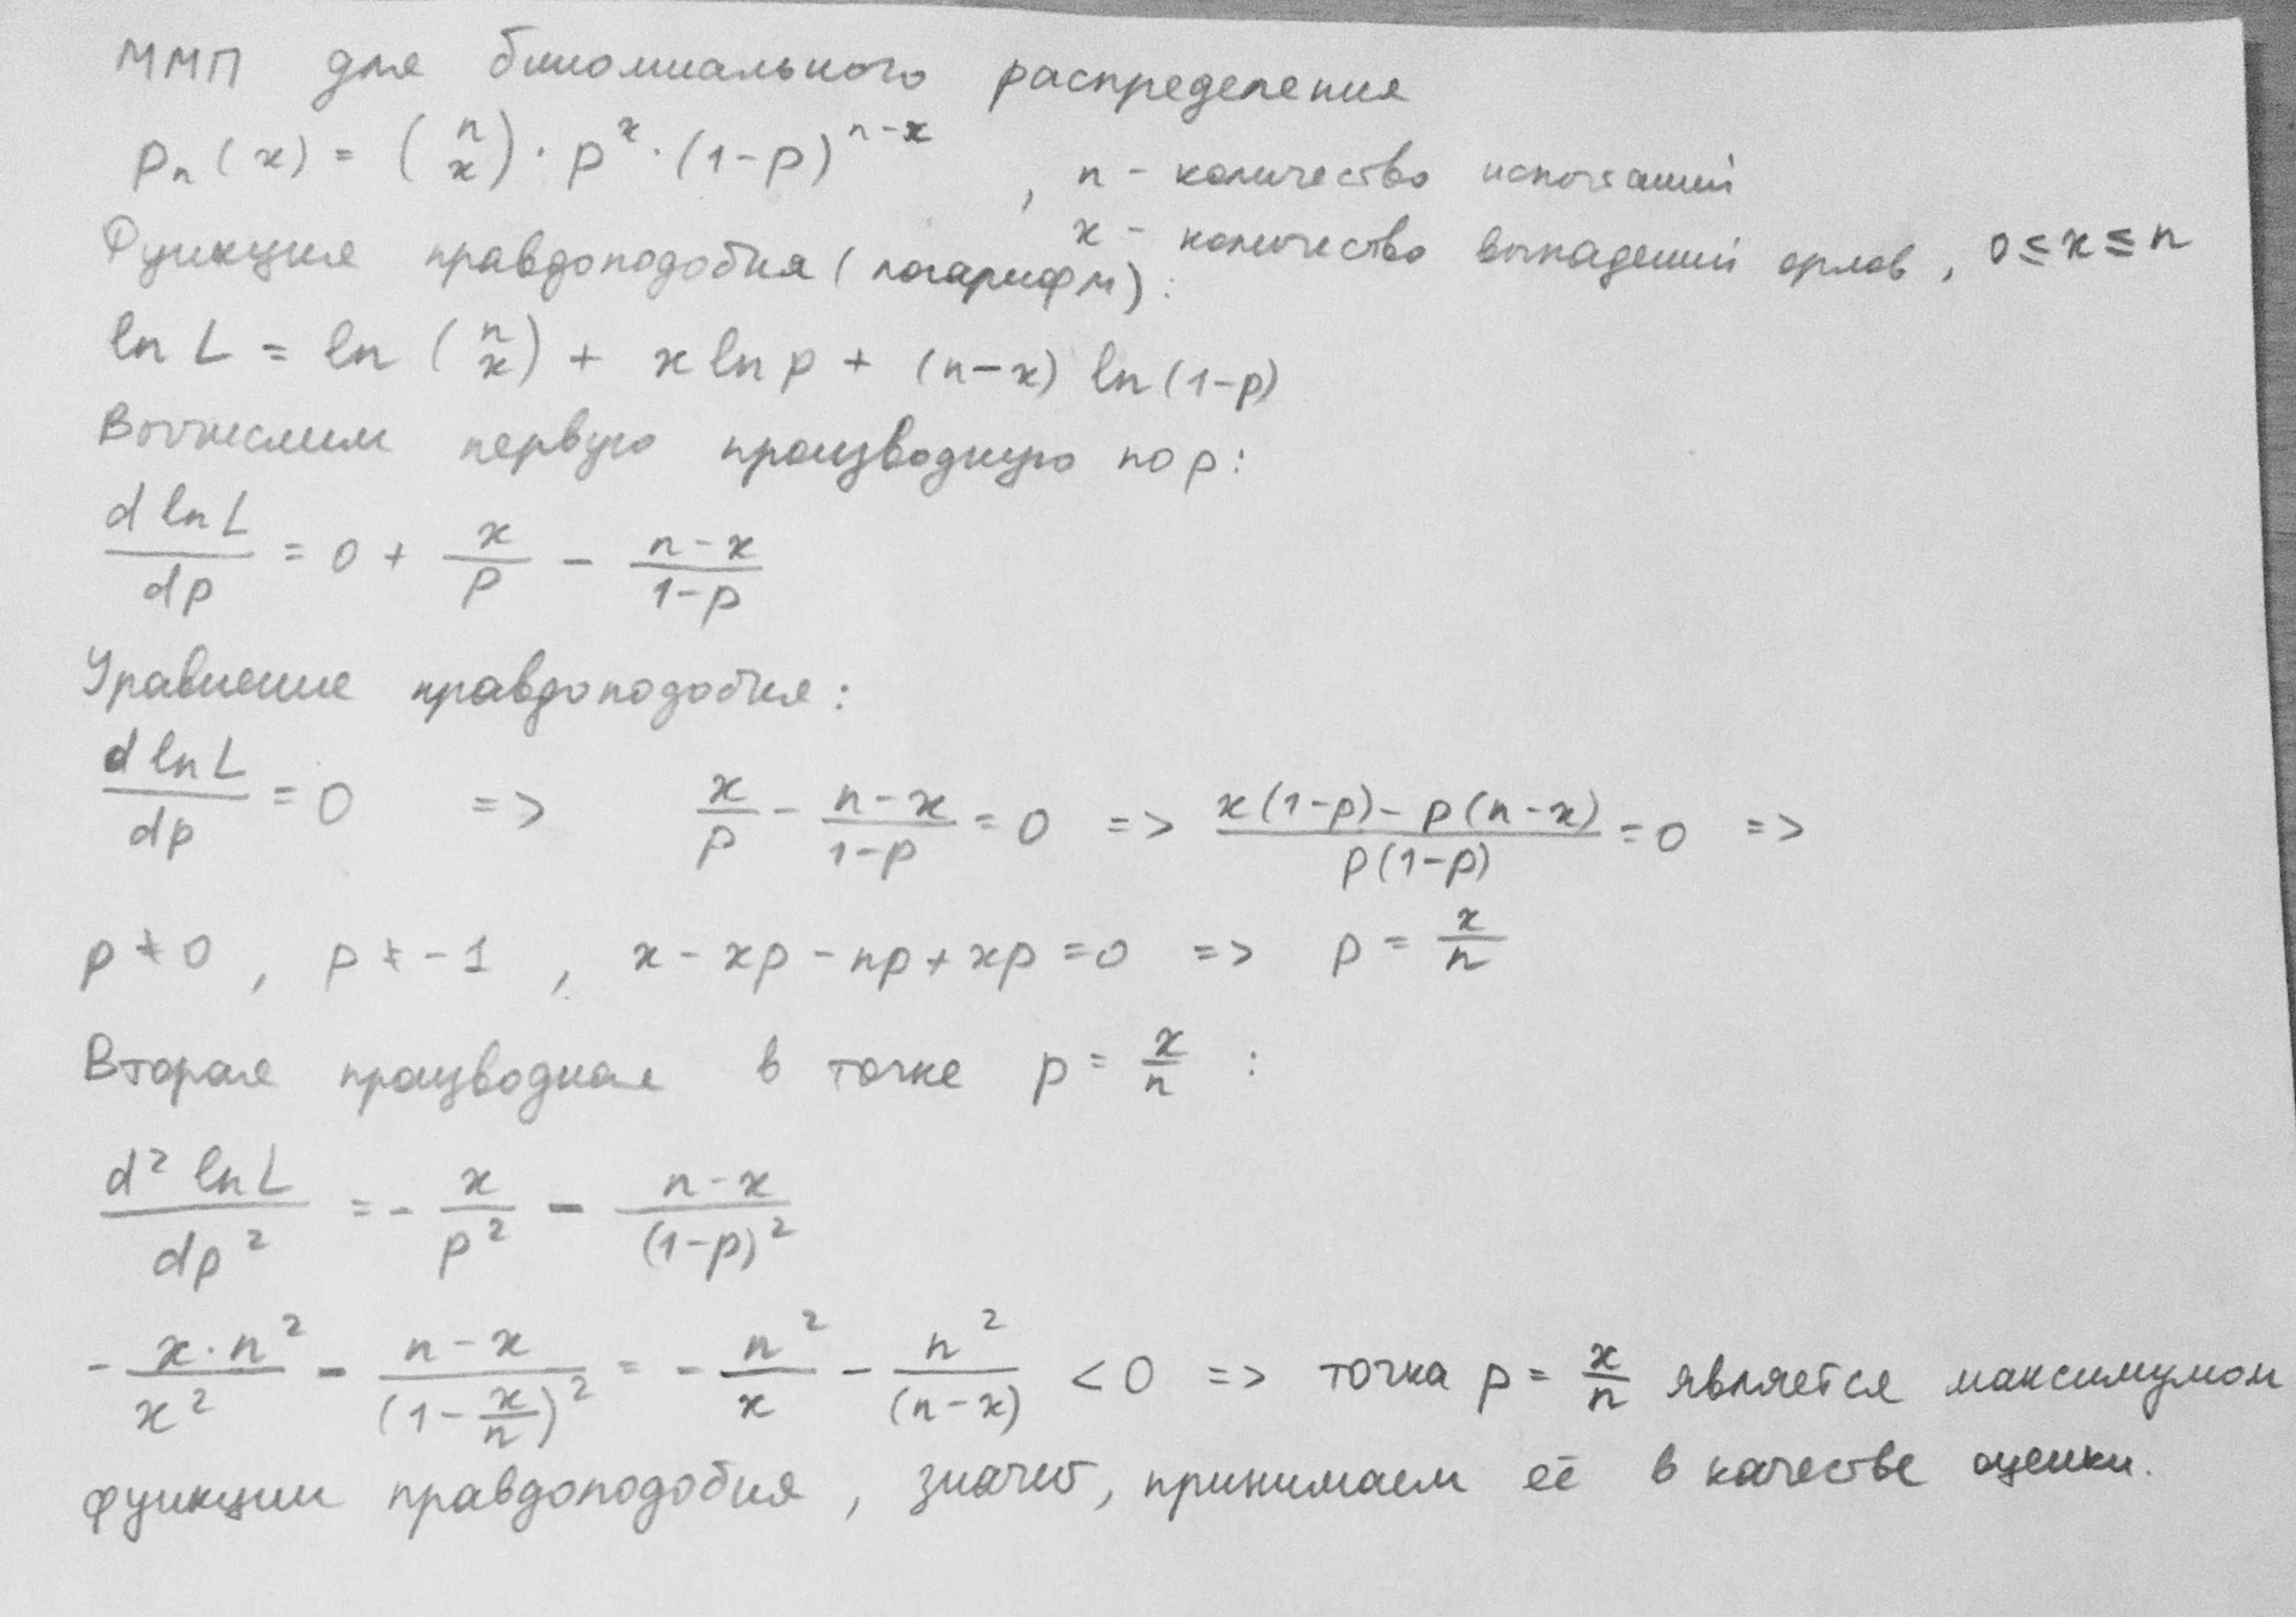 ММП для биномиального распределения
pₙ(x) = (n x) · pˣ · (1-p)ⁿ⁻ˣ , n - количество испытаний
x - количество выпадений орлов, 0 ≤ x ≤ n
Функция правдоподобия (логарифм):
ln L = ln (n x) + x ln p + (n-x) ln (1-p)
Вычислим первую производную по p:
d ln L / dp = 0 + x/p - (n-x)/(1-p)
Уравнение правдоподобия:
d ln L / dp = 0 => x/p - (n-x)/(1-p) = 0 => (x(1-p) - p(n-x)) / (p(1-p)) = 0 =>
p ≠ 0, p ≠ -1, x - xp - np + xp = 0 => p = x/n
Вторая производная в точке p = x/n :
d² ln L / dp² = - x/p² - (n-x)/(1-p)²
- x·n²/x² - (n-x)/(1 - x/n)² = - n²/x - n²/(n-x) < 0 => точка p = x/n является максимумом
функции правдоподобия, значит, принимаем её в качестве оценки.